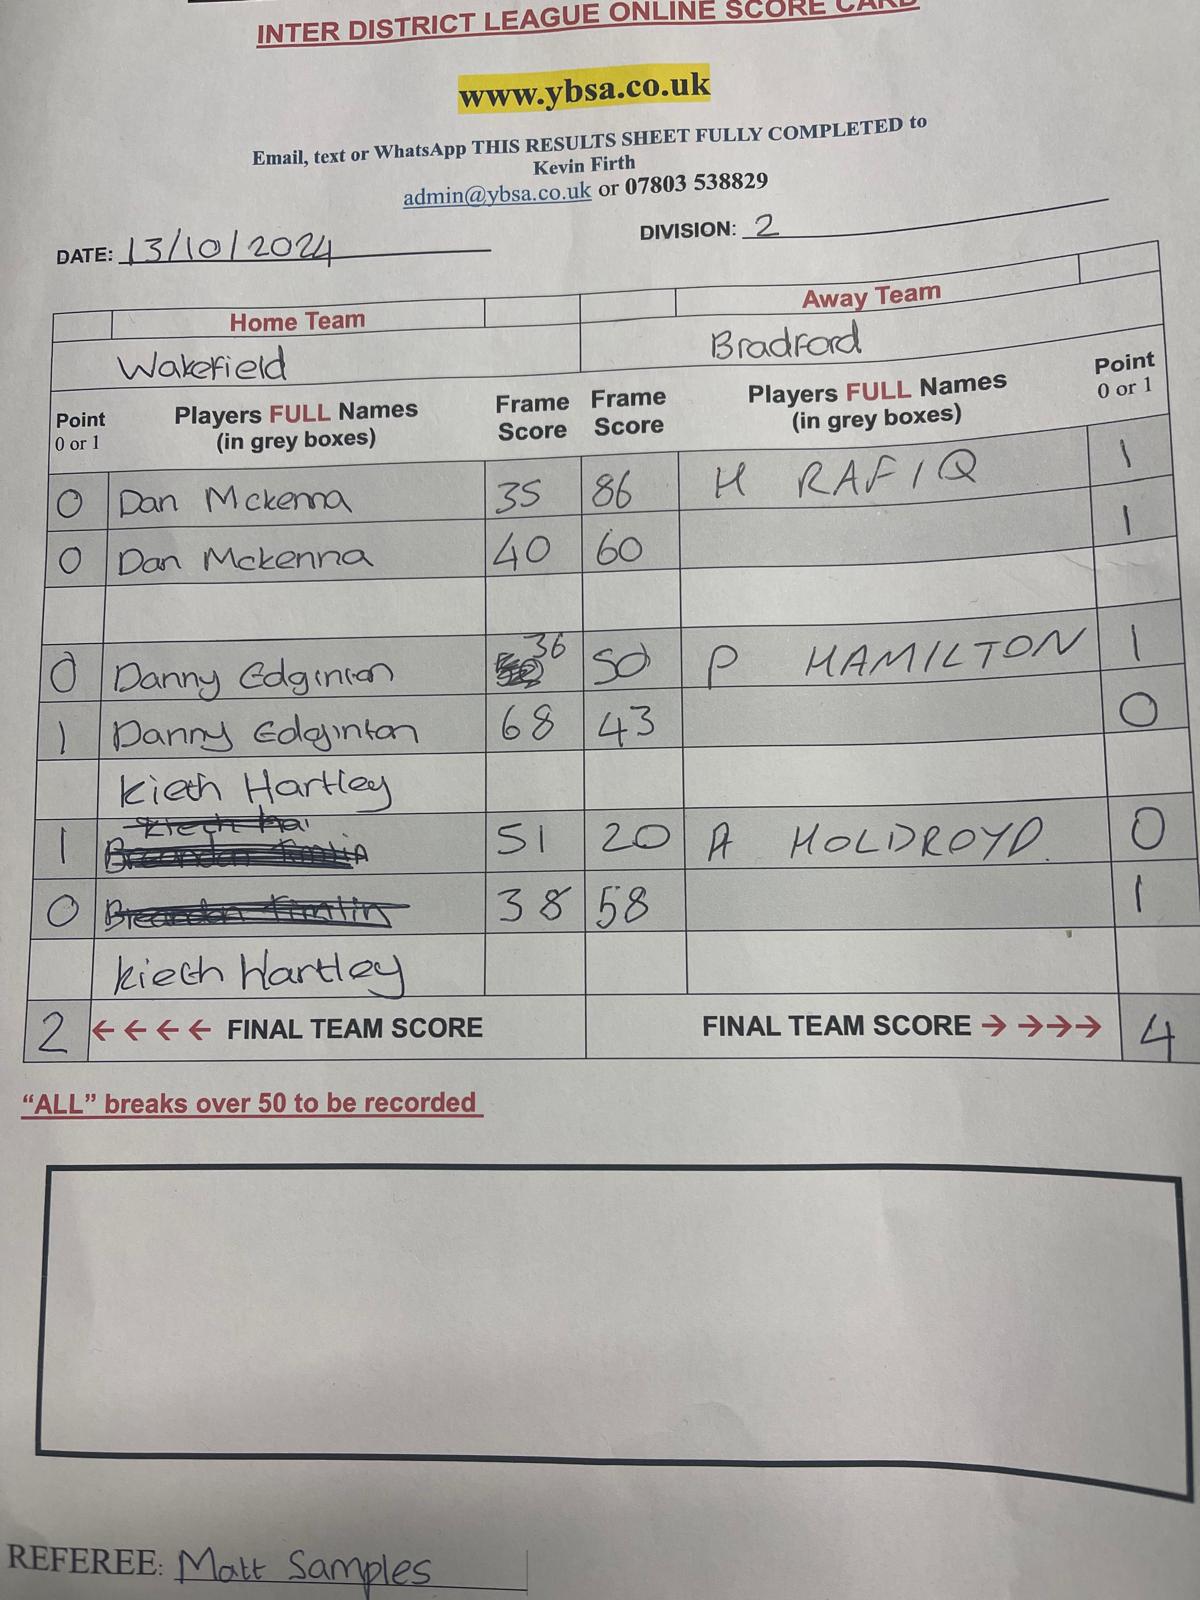 INTER DISTRICT LEAGUE ONLINE SCORE CARD
www.ybsa.co.uk
Email, text or WhatsApp THIS RESULTS SHEET FULLY COMPLETED to
Kevin Firth
admin@ybsa.co.uk or 07803 538829
DATE: 13/10/2024 DIVISION: 2
Home Team Away Team
Wakefield Bradford
Point 0 or 1 Players FULL Names (in grey boxes) Frame Score Frame Score Players FULL Names (in grey boxes) Point 0 or 1
0 Dan Mckenna 35 86 H RAFIQ 1
0 Dan Mckenna 40 60 1
0 Danny Edginton 36 50 P HAMILTON 1
1 Danny Edginton 68 43 0
Kieth Hartley
Kieth Har
1 Breandan Timlin 51 20 A HOLDROYD. 0
0 Breandan Timlin 38 58 1
Kieth Hartley
2 ←←←← FINAL TEAM SCORE FINAL TEAM SCORE →→→→ 4
“ALL” breaks over 50 to be recorded
REFEREE: Matt Samples